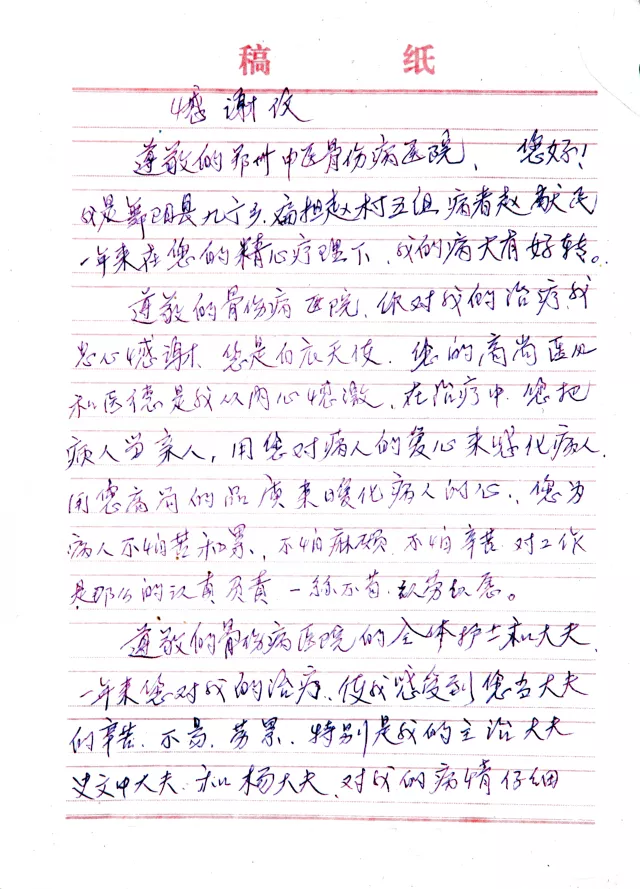 稿 纸
感谢信
尊敬的郑州中医骨伤病医院、 您好!
我是舞阳县九丁乡扁担赵村五组 病者赵献民
一年来在您的精心疗理下、我的病大有好转。
尊敬的骨伤病医院、你对我的治疗、我
忠心感谢、您是白衣天使、您的高尚医
和医德是我从内心感激、在治疗中、您把
病人当亲人,用您对病人的爱心来感化病人、
用您高尚的品质来暖化病人的心、您为
病人不怕苦和累、不怕麻烦、不怕辛苦、对工作
是那么的认真负责 一丝不苟、任劳任怨。
尊敬的骨伤病医院的全体护士和大夫、
一年来您对我的治疗、使我感受到您当大夫
的辛苦、不易、劳累、特别是我的主治大夫
史文中大夫、和杨大夫、对我的病情仔细